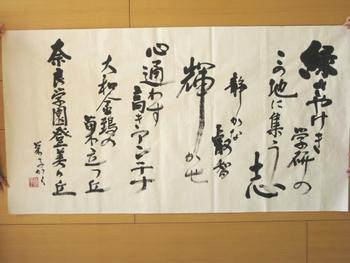 緑さやけき
学研の
この地に集う
志
静かな叡智
輝かせ
心通わす
高きアンテナ
大和金鵄の
巣立つ丘
奈良学園登美ヶ丘